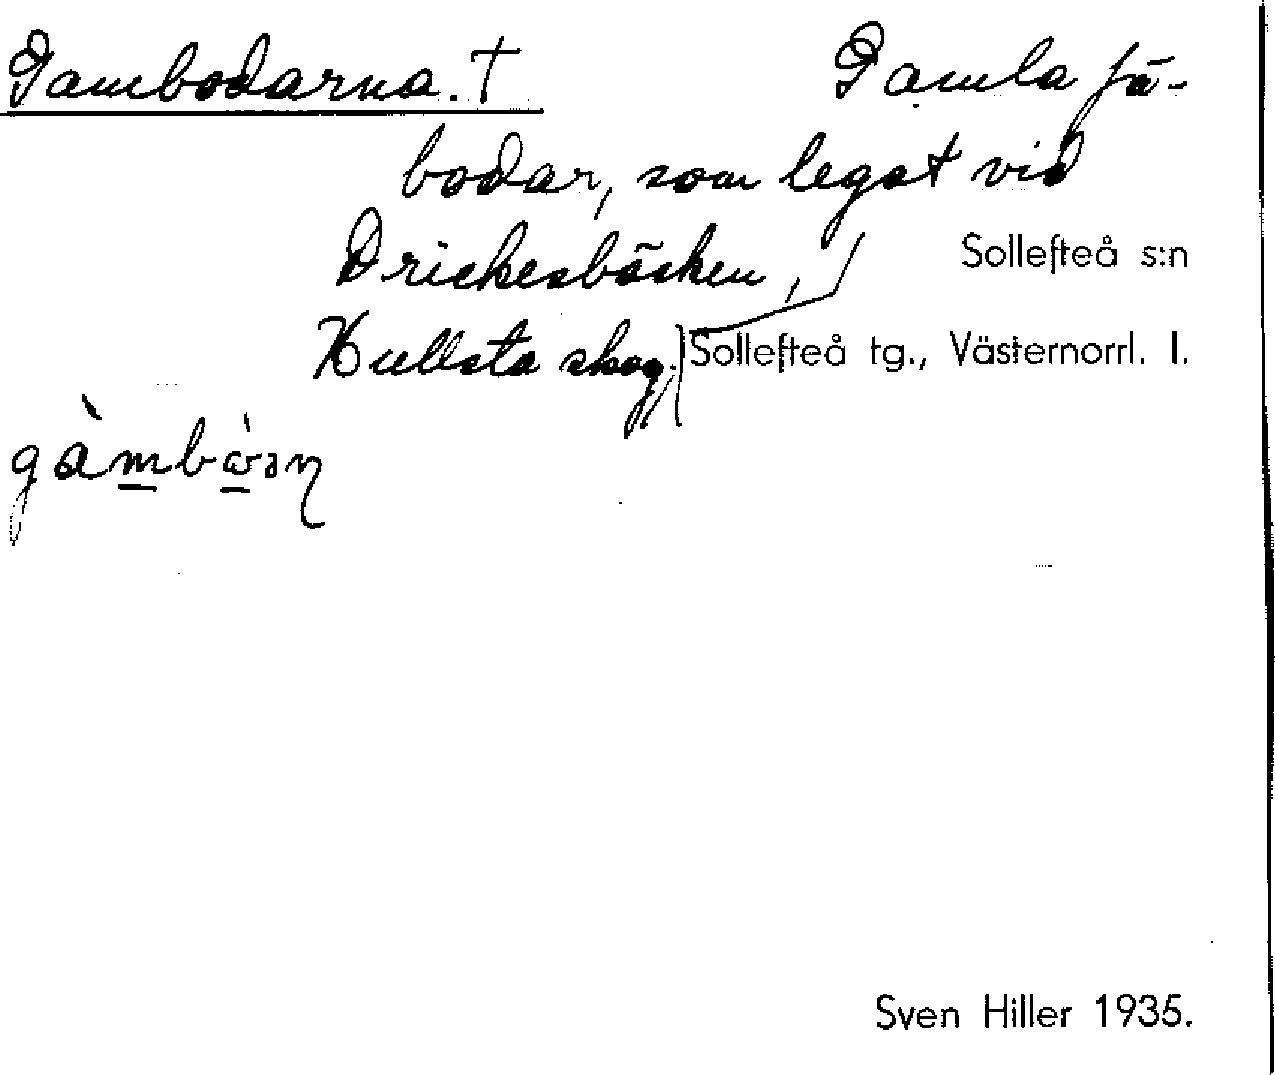 Gambodarna. †
Gamla fä-
bodar, som legat vid
Drickesbäcken,
Sollefteå s:n
Hullsta skog.
Sollefteå tg., Västernorrl. l.
Sven Hiller 1935.